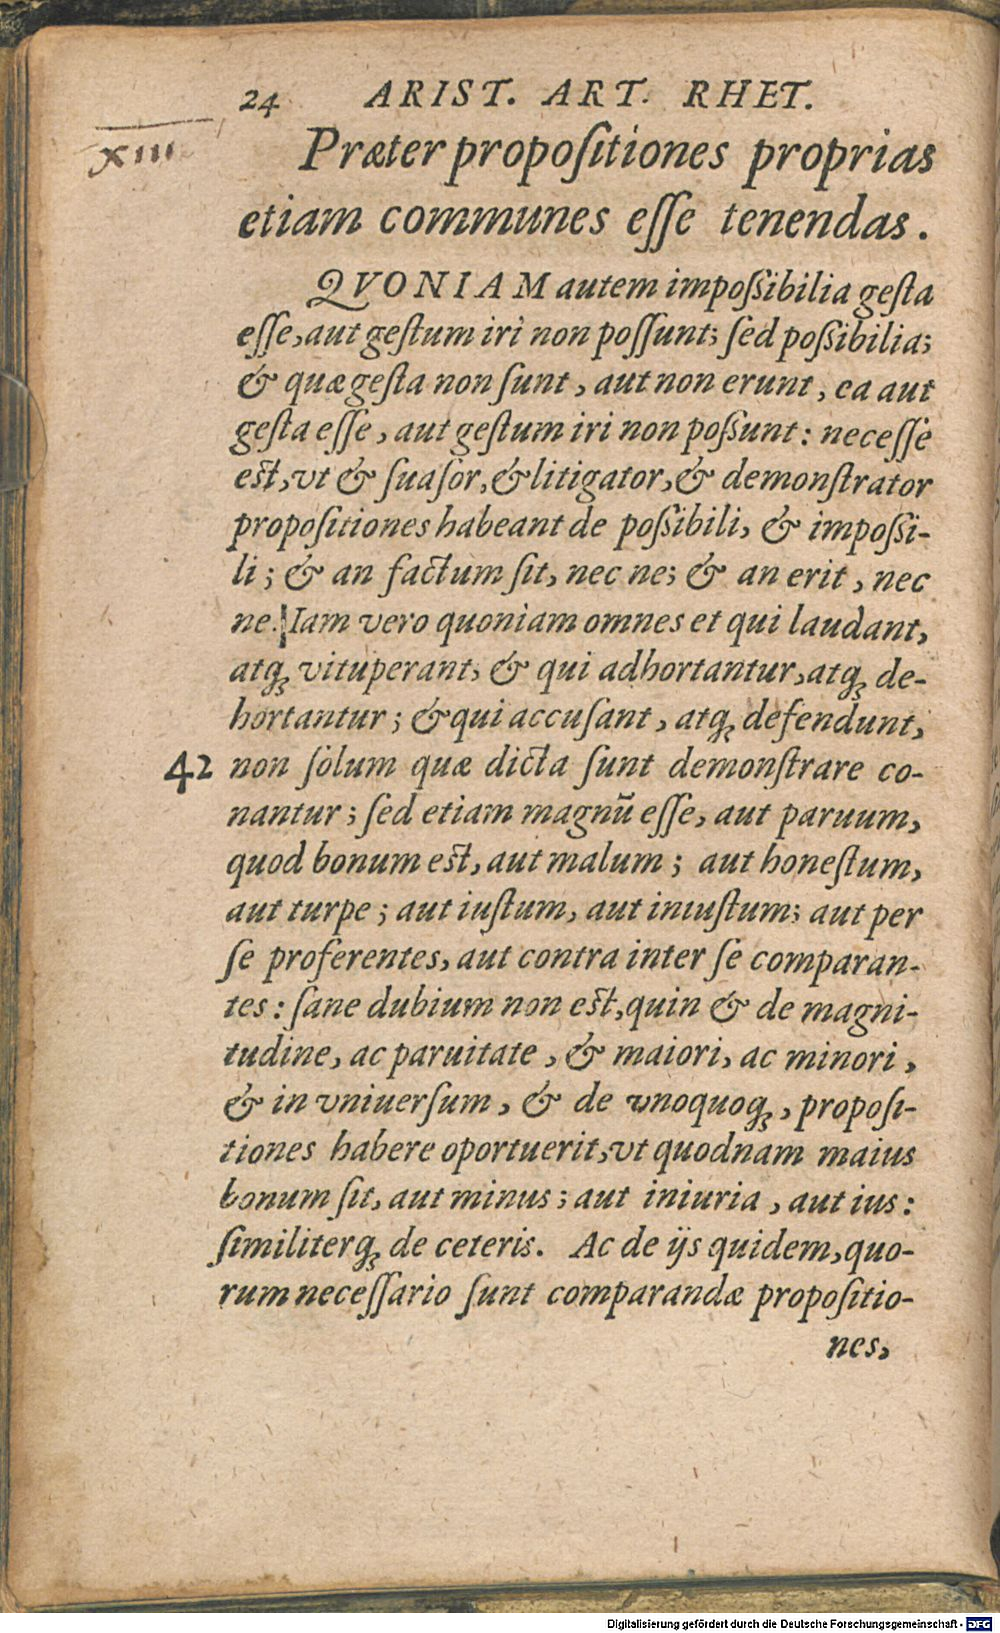 24 ARIST. ART. RHET.
XIII
Præter propoſitiones proprias
etiam communes eſſe tenendas.
QVONIAM autem impoßibilia geſta
eſſe, aut geſtum iri non poſſunt; ſed poßibilia;
& quæ geſta non ſunt, aut non erunt, ea aut
geſta eſſe, aut geſtum iri non poßunt: neceſſe
est, vt & ſuaſor, & litigator, & demonſtrator
propoſitiones habeant de poßibili, & impoßi-
li; & an factum ſit, nec ne; & an erit, nec
ne. Iam vero quoniam omnes et qui laudant,
atq; vituperant; & qui adhortantur, atq; de-
hortantur; & qui accuſant, atq; defendunt,
42 non ſolum quæ dicta ſunt demonſtrare co-
nantur; ſed etiam magnũ eſſe, aut paruum,
quod bonum est, aut malum; aut honeſtum,
aut turpe; aut iuſtum, aut iniuſtum; aut per
ſe proferentes, aut contra inter ſe comparan-
tes: ſane dubium non est, quin & de magni-
tudine, ac paruitate, & maiori, ac minori,
& in vniuerſum, & de vnoquoq;, propoſi-
tiones habere oportuerit, vt quodnam maius
bonum ſit, aut minus; aut iniuria, aut ius:
ſimiliterq; de ceteris. Ac de ijs quidem, quo-
rum neceſſario ſunt comparandæ propoſitio-
nes,
Digitalisierung gefördert durch die Deutsche Forschungsgemeinschaft - DFG